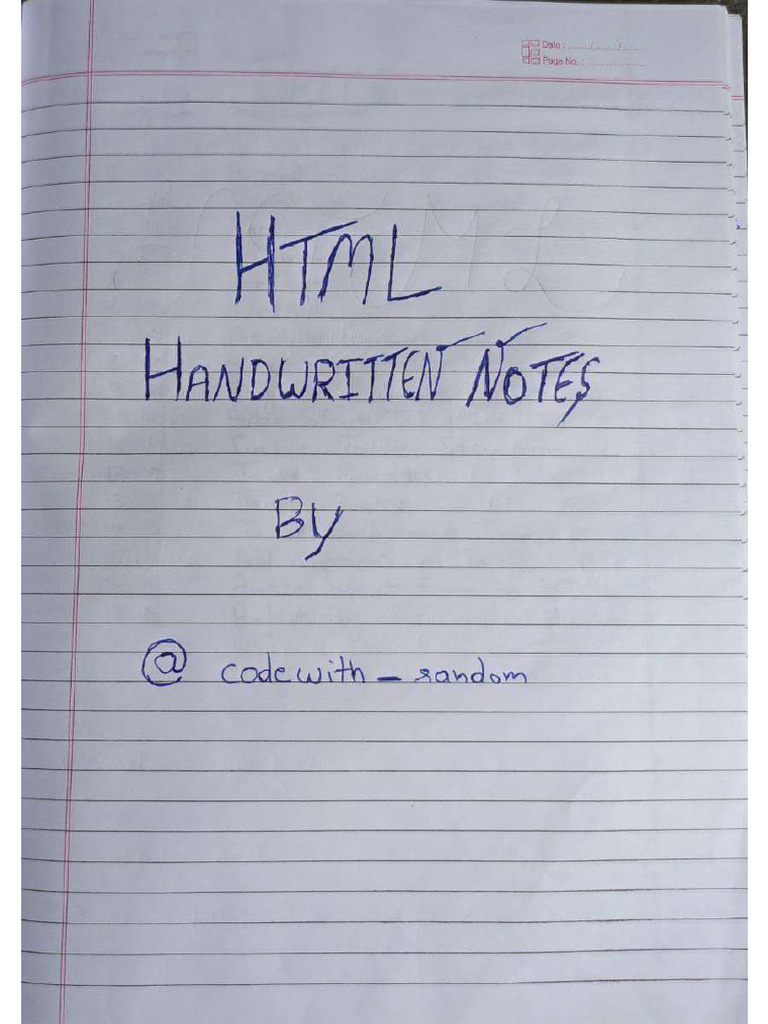 Date :
Page No. :
HTML
HANDWRITTEN NOTES
By
@ codewith_random